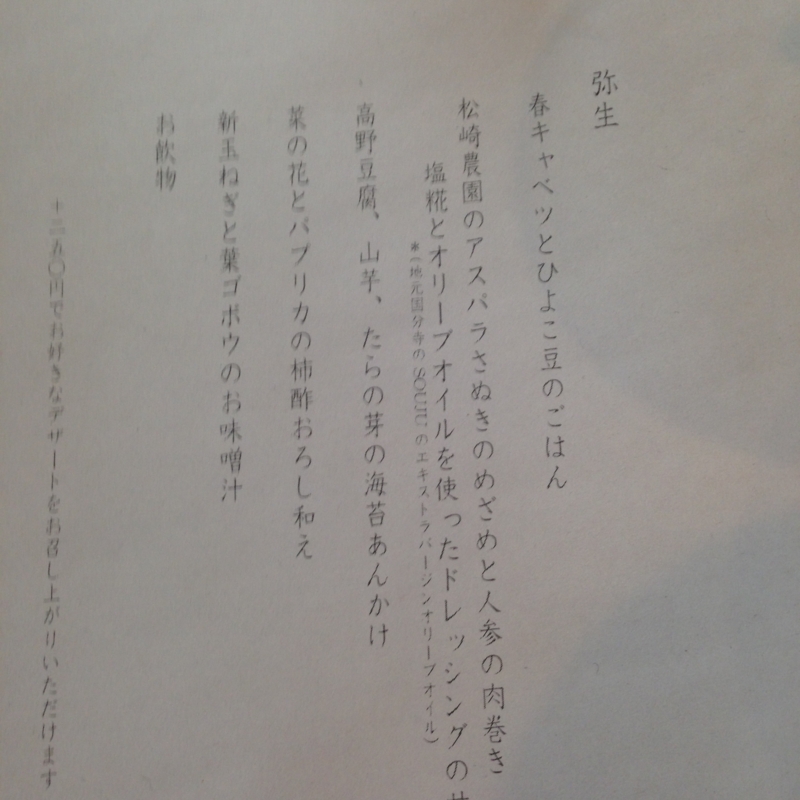 弥生
春キャベツとひよこ豆のごはん
松崎農園のアスパラさぬきのめざめと人参の肉巻き
塩糀とオリーブオイルを使ったドレッシングの
*(地元国分寺の SOUJU のエキストラバージンオリーブオイル)
高野豆腐、山芋、たらの芽の海苔あんかけ
菜の花とパプリカの柿酢おろし和え
新玉ねぎと葉ゴボウのお味噌汁
お飲物
+二五〇円でお好きなデザートをお召し上がりいただけます